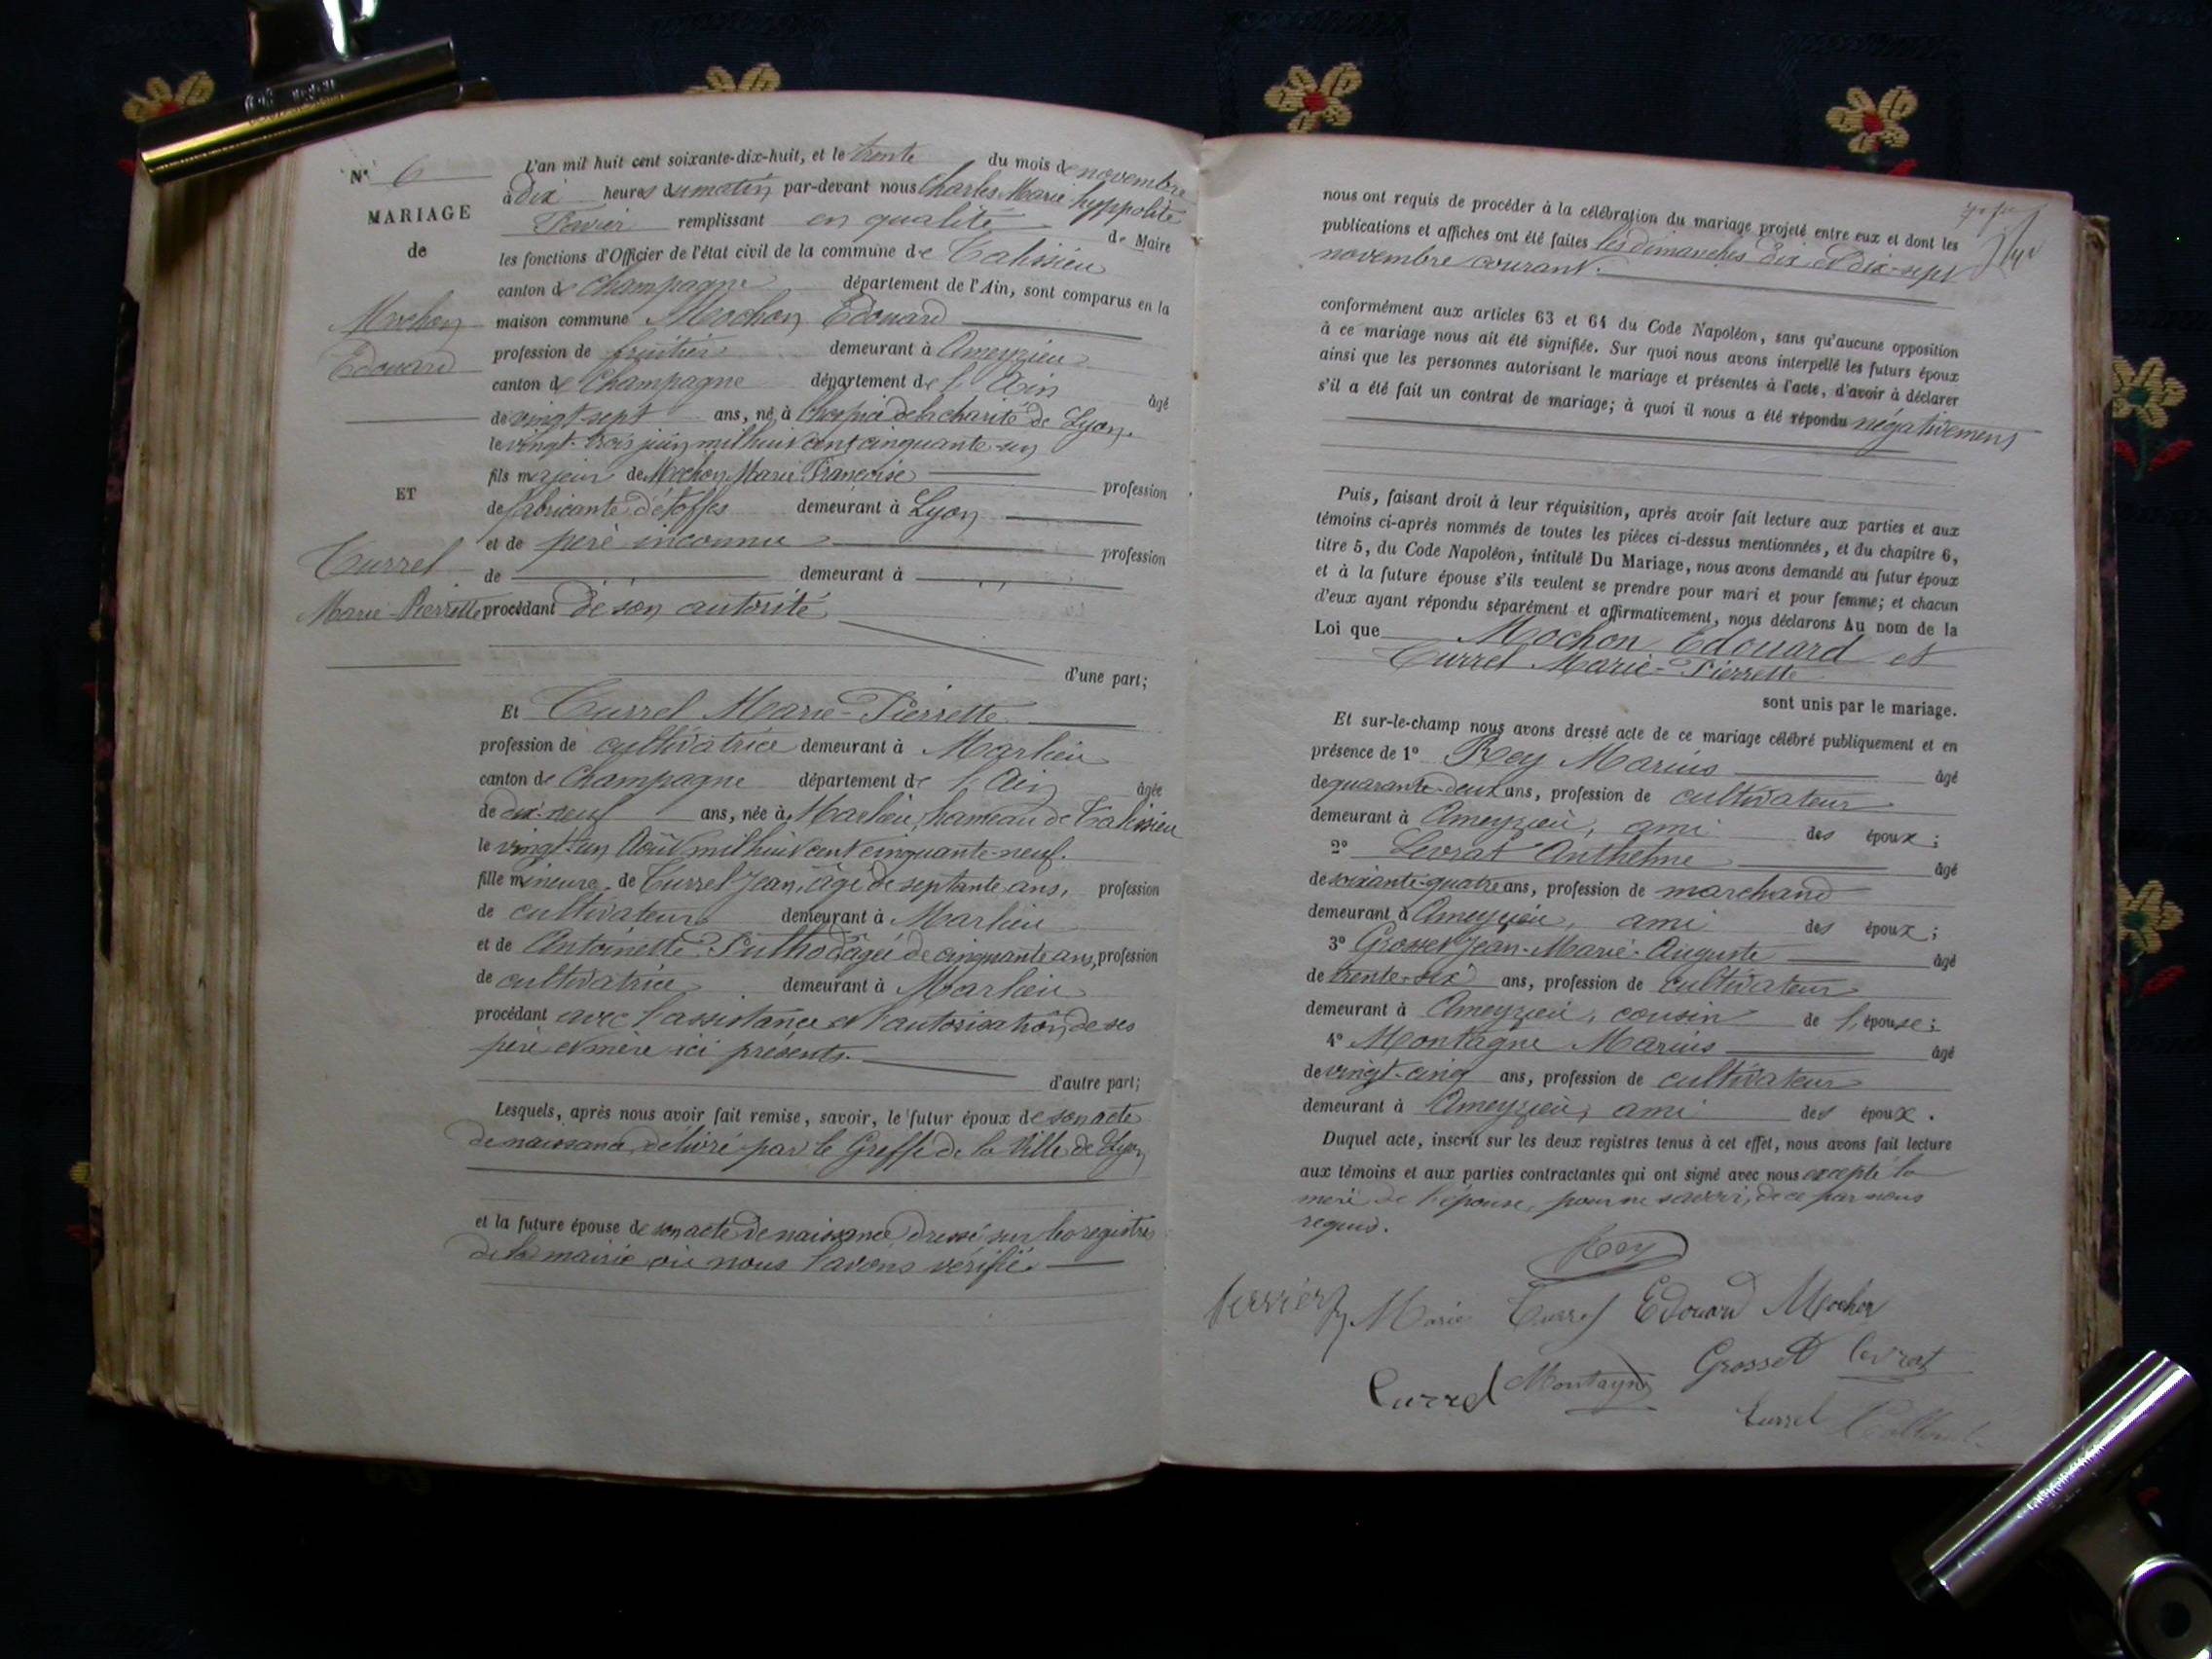 Nº 6
MARIAGE
de
Mochon
Edouard
ET
Turrel
Marie-Pierrette
L'an mil huit cent soixante-dix-huit, et le trente du mois de novembre
à dix heures du matin par-devant nous Charles Marie hyppolite
remplissant en qualité de Maire
les fonctions d'Officier de l'état civil de la commune de Talissieu
canton de Champagne département de l'Ain, sont comparus en la
maison commune Mochon Edouard
profession de fruitier demeurant à Ameyzieu
canton de Champagne département de l'Ain âgé
de vingt-sept ans, né à l'hospice de la charité de Lyon,
le vingt-trois juin mil huit cent cinquante-un
fils majeur de Mochon Marie Françoise profession
de fabricante d'étoffes demeurant à Lyon
et de père inconnu profession
de demeurant à
procédant de son autorité
d'une part;
Et Turrel Marie-Pierrette
profession de cultivatrice demeurant à Marlieu
canton de Champagne département de l'Ain âgée
de dix-neuf ans, née à Marlieu, hameau de Talissieu
le vingt-un Août mil huit cent cinquante-neuf.
fille mineure de Turrel Jean, âgé de septante ans, profession
de cultivateur demeurant à Marlieu
et de Antoinette Puthod âgée de cinquante ans, profession
de cultivatrice demeurant à Marlieu
procédant avec l'assistance et l'autorisation de ses
père et mère ici présents.
d'autre part;
Lesquels, après nous avoir fait remise, savoir, le futur époux de son acte
de naissance délivré par le Greffe de la Ville de Lyon
et la future épouse de son acte de naissance dressé sur les registres
de la mairie où nous l'avons vérifié.
nous ont requis de procéder à la célébration du mariage projeté entre eux et dont les
publications et affiches ont été faites les dimanches dix et dix-sept
novembre courant.
conformément aux articles 63 et 64 du Code Napoléon, sans qu'aucune opposition
à ce mariage nous ait été signifiée. Sur quoi nous avons interpellé les futurs époux
ainsi que les personnes autorisant le mariage et présentes à l'acte, d'avoir à déclarer
s'il a été fait un contrat de mariage; à quoi il nous a été répondu négativement
Puis, faisant droit à leur réquisition, après avoir fait lecture aux parties et aux
témoins ci-après nommés de toutes les pièces ci-dessus mentionnées, et du chapitre 6,
titre 5, du Code Napoléon, intitulé Du Mariage, nous avons demandé au futur époux
et à la future épouse s'ils veulent se prendre pour mari et pour femme; et chacun
d'eux ayant répondu séparément et affirmativement, nous déclarons Au nom de la
Loi que Mochon Edouard et
Turrel Marie-Pierrette
sont unis par le mariage.
Et sur-le-champ nous avons dressé acte de ce mariage célébré publiquement et en
présence de 1º Rey Marius âgé
de quarante-deux ans, profession de cultivateur
demeurant à Ameyzieu, ami des époux;
2º Levrat Anthelme âgé
de soixante-quatre ans, profession de marchand
demeurant à Ameyzieu, ami des époux;
3º Grosset Jean-Marie-Auguste âgé
de trente-six ans, profession de cultivateur
demeurant à Ameyzieu, cousin de l'épouse;
4º Montagne Marius âgé
de vingt-cinq ans, profession de cultivateur
demeurant à Ameyzieu, ami des époux.
Duquel acte, inscrit sur les deux registres tenus à cet effet, nous avons fait lecture
aux témoins et aux parties contractantes qui ont signé avec nous excepté la
mère de l'épouse, pour ne savoir, de ce par nous
requis.
Rey
Marie Turrel Edouard Mochon
Turrel Montagne Grosset Levrat
Turrel